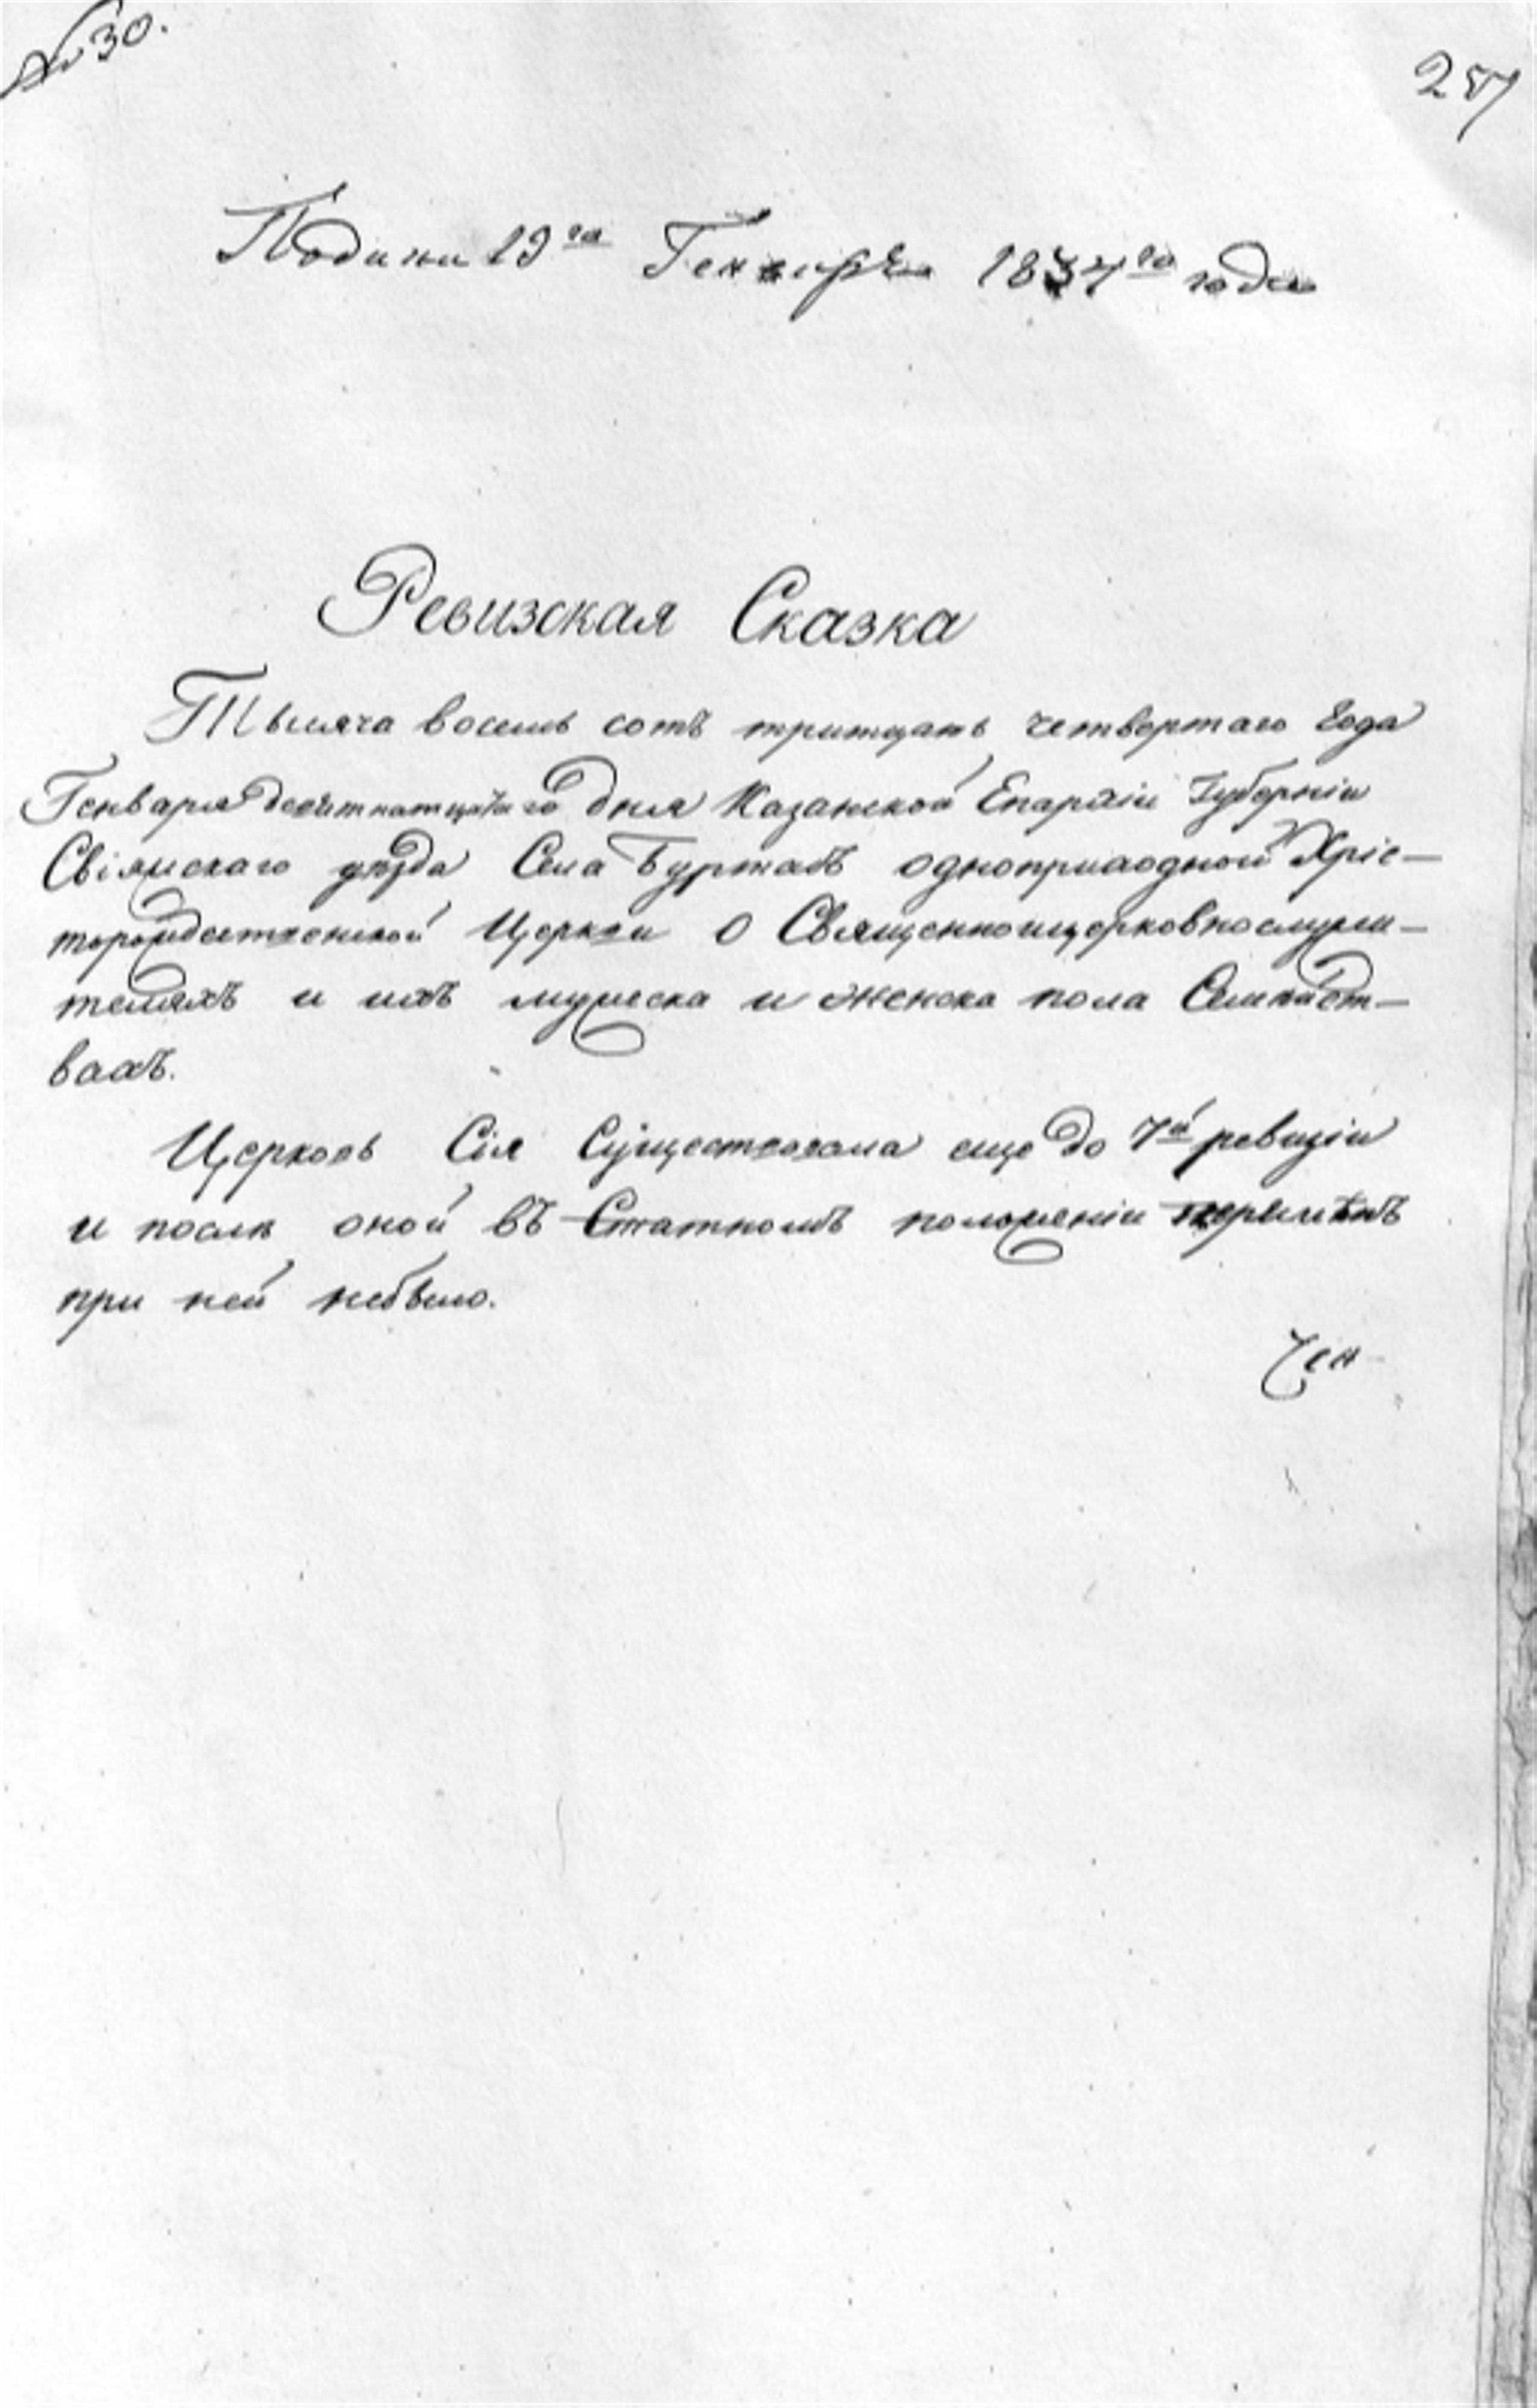 № 30.
257
Подана 19го Генваря 1834го года
Ревизская Сказка
Тысяча восемь сотъ тритцать четвертаго года
Генваря девятнатцатаго дня Казанской Епархіи Губерніи
Свіяжскаго уѣзда Села Буртасъ одноприходной Хріс-
торождественской Церкви О Священноицерковнослужи-
теляхъ и ихъ мужеска и женска пола Семѣйст-
вахъ.
Церковь Сія Существовала еще до 7й ревизіи
и послѣ оной въ Статномъ положеніи перемѣнъ
при ней небыло.